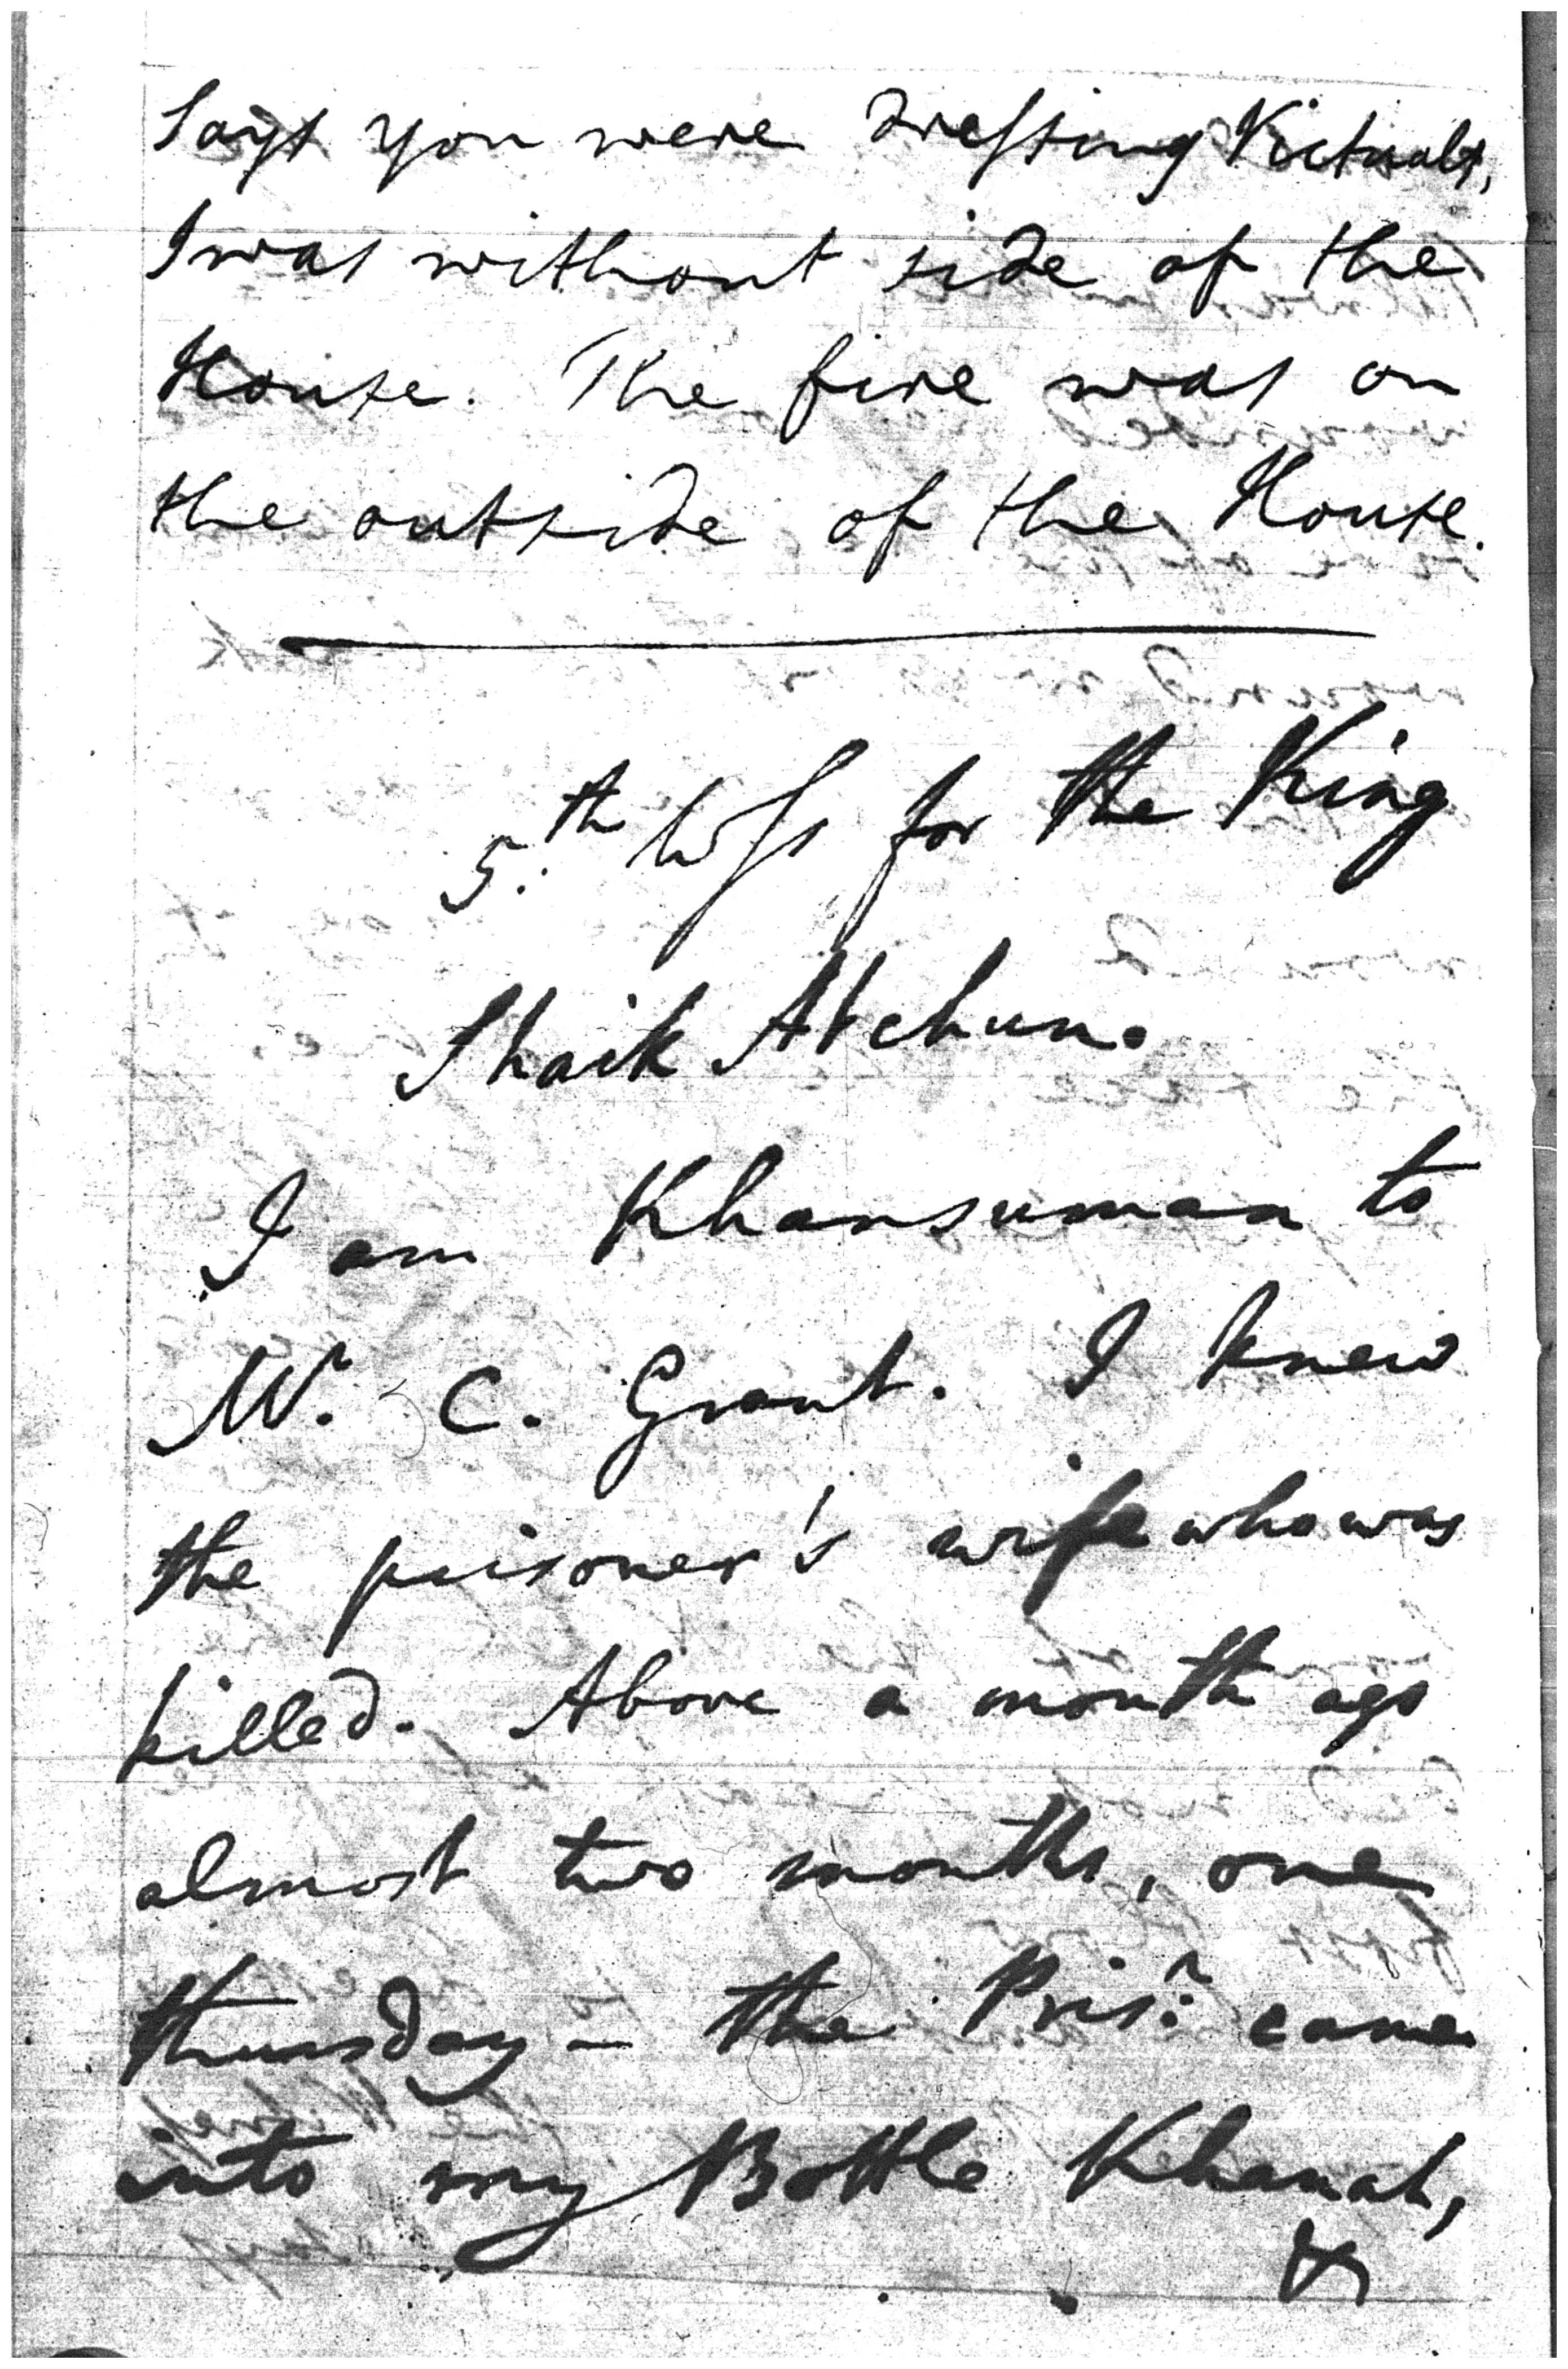 Says you were dressing Victuals,
I was without side of the
House. The fire was on
the outside of the House.
5.th Wss for the King
Shaik Atchun.
I am Khansuman to
Mr. C. Grant. I knew
the prisoner's wife who was
killed. Above a month ago
almost two months, one
thursday - the Prisr. came
into my Bottle Khanah,
&